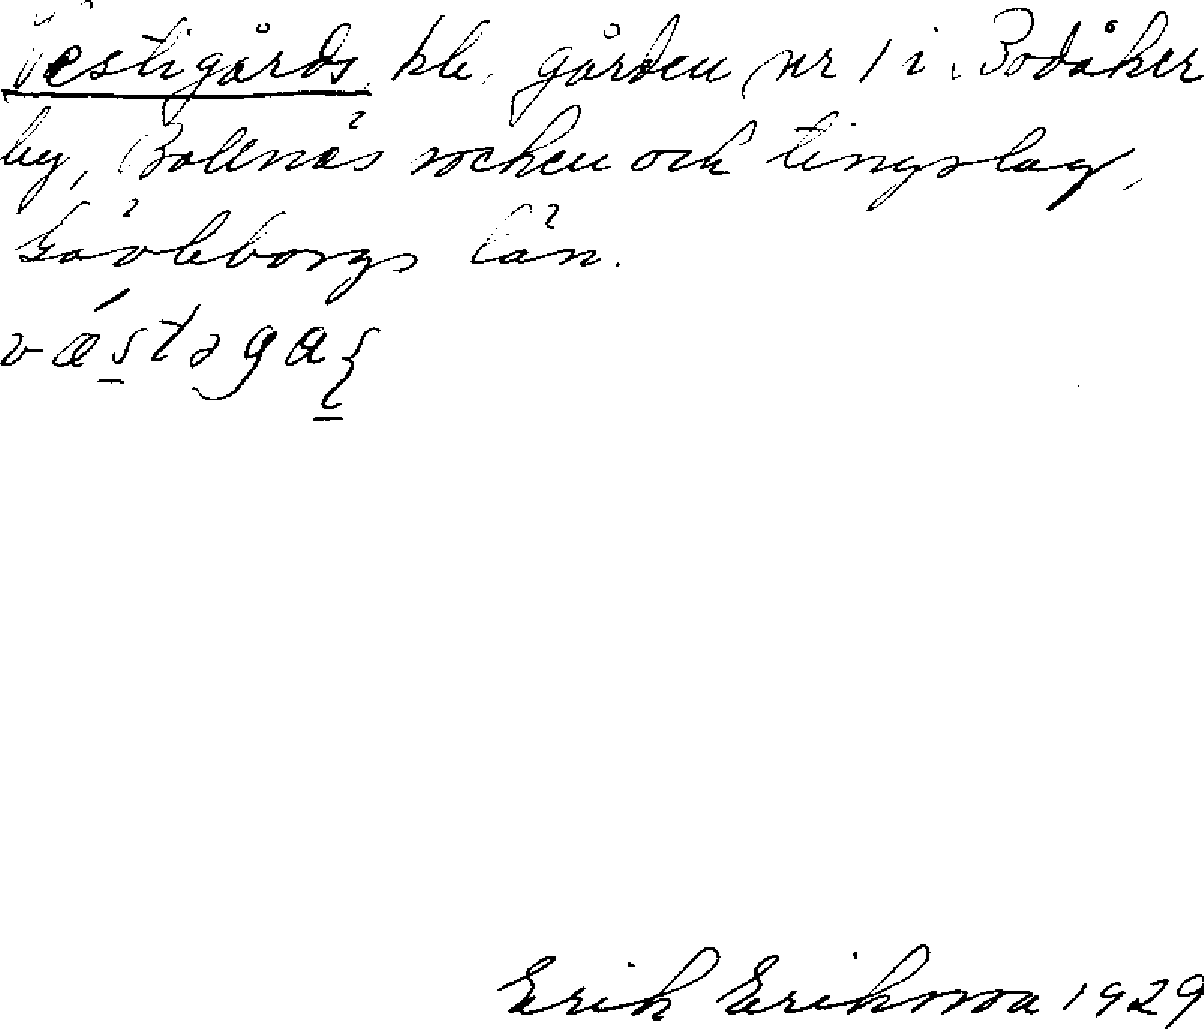 Västigårds kle. gården nr 1 i Bodåker
by, Bollnäs socken och tingslag,
Gävleborgs län.
væ´stəgaʂ
Erik Eriksson 1929